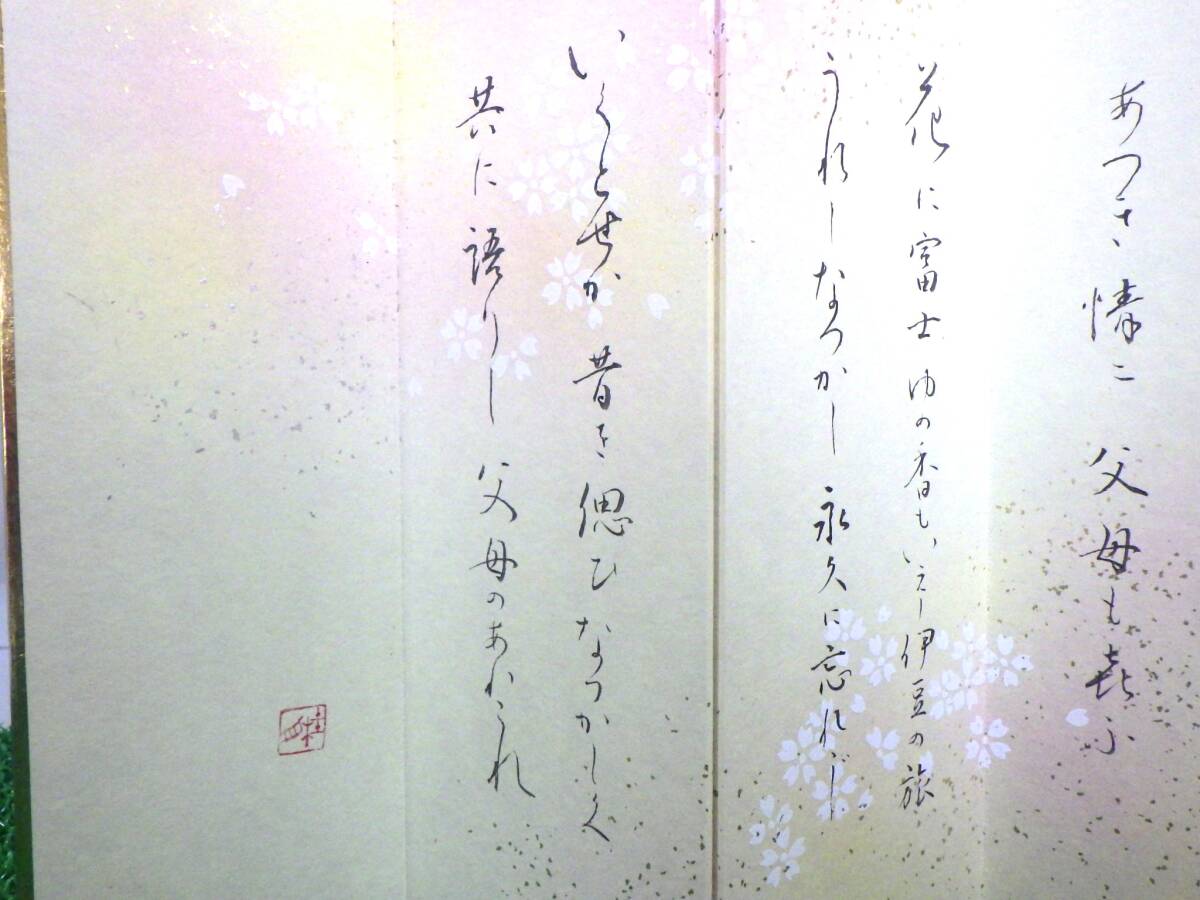 あつき情に 父母も喜ふ
花に富士 ゆの香もいえし 伊豆の旅
うれしなつかし 永久に忘れじ
いくとせか 昔を偲ひ なつかしく
共に語りし 父母のあわれ